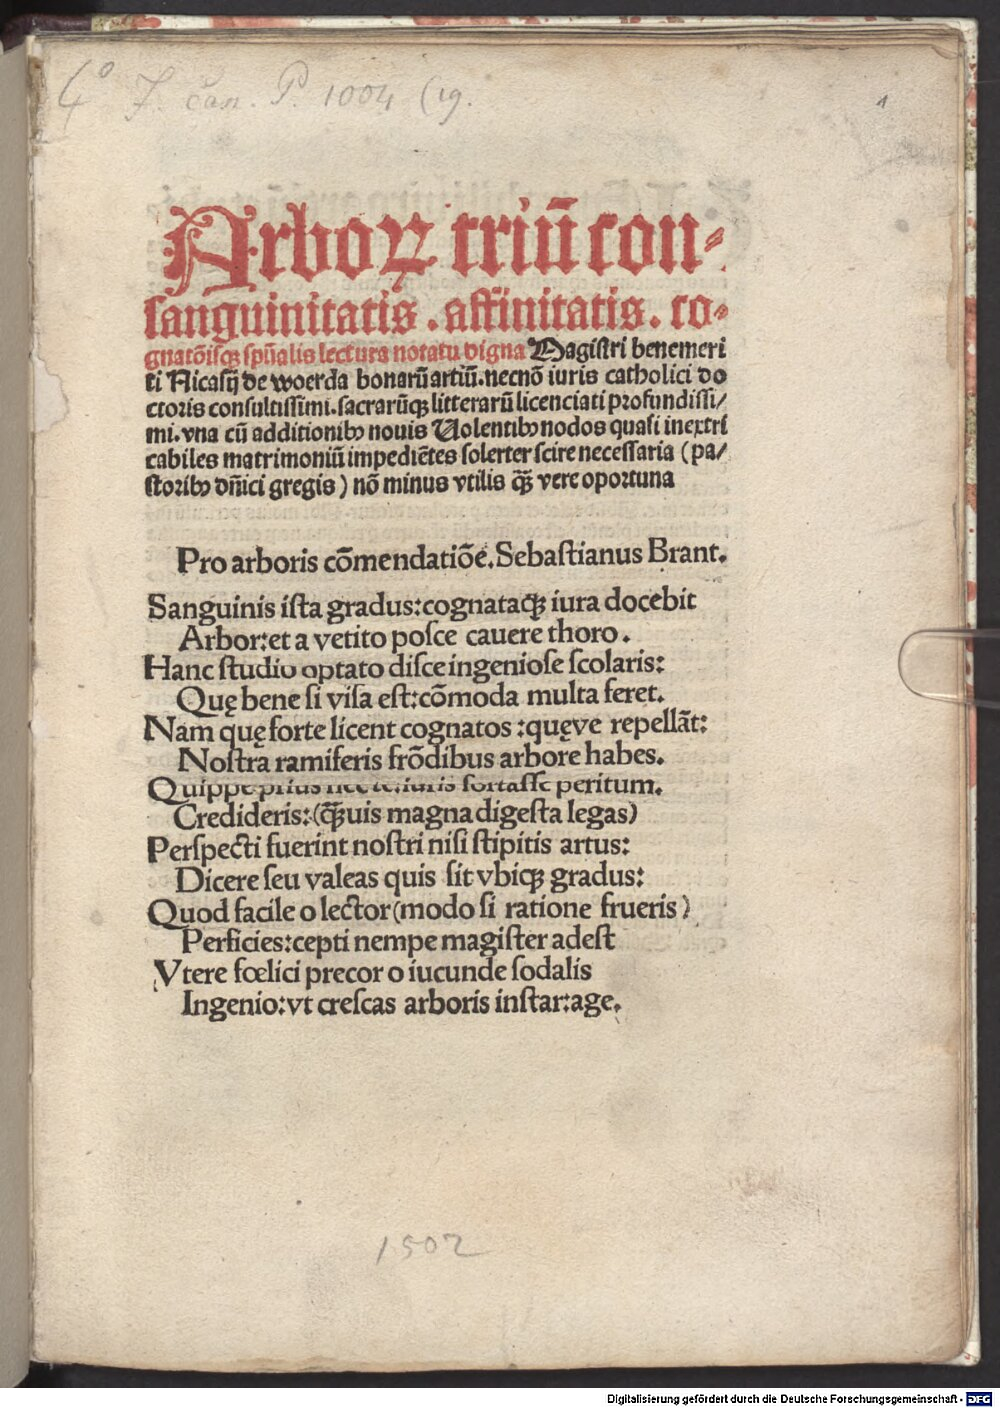 4° J. can. P. 1004 (19.
1
Arboꝝ triū con⸗
sanguinitatis . affinitatis . co⸗
gnatōisqꝫ spūalis lectura notatu digna Magistri benemeri
ti Nicasij de woerda bonarū artiū. necnō iuris catholici do
ctoris consultissimi. sacrarūqꝫ litterarū licenciati profundissi/
mi. vna cū additionibꝰ nouis Uolentibꝰ nodos quasi inextri
cabiles matrimoniū impediētes solerter scire necessaria (pa/
storibꝰ dn̄ici gregis) nō minus vtilis qꝫ̄ vere oportuna
Pro arboris cōmendatiōe. Sebastianus Brant.
Sanguinis ista gradus: cognatacqꝫ iura docebit
Arbor: et a vetito posce cauere thoro.
Hanc studio optato disce ingeniose scolaris:
Quę bene si visa est: cōmoda multa feret.
Nam quę forte licent cognatos : quęve repellāt:
Nostra ramiferis frōdibus arbore habes.
Quippe prius nec te. iuris fortasse peritum.
Credideris: (qꝫ̄uis magna digesta legas)
Perspecti fuerint nostri nisi stipitis artus:
Dicere seu valeas quis sit vbicqꝫ gradus:
Quod facile o lector (modo si ratione frueris)
Perficies: cepti nempe magister adest
Vtere fœlici precor o iucunde sodalis
Ingenio: vt crescas arboris instar: age.
1502
Digitalisierung gefördert durch die Deutsche Forschungsgemeinschaft - DFG